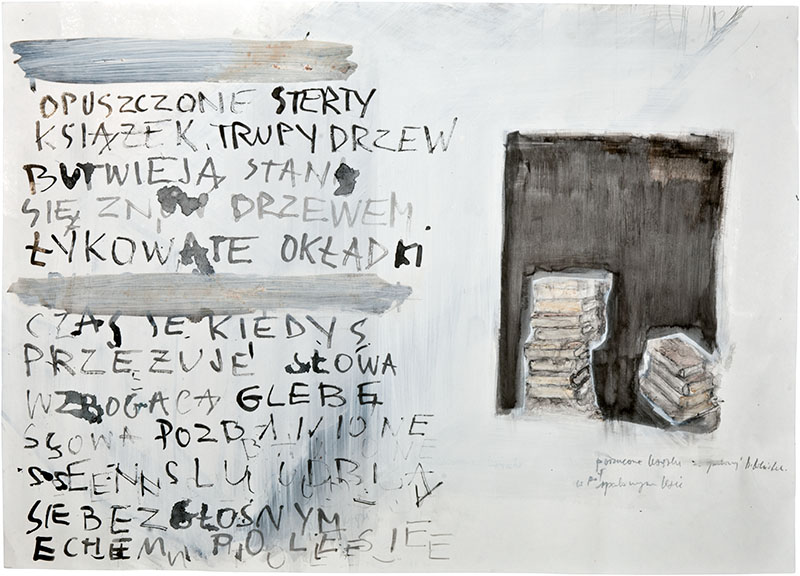 OPUSZCZONE STERTY
KSIĄŻEK. TRUPY DRZEW
BUTWIEJĄ STANĄ
SIĘ ZNÓW DRZEWEM
ŁYKOWATE OKŁADKI
CZAS JE KIEDYŚ
PRZEŻUJE SŁOWA
WZBOGACĄ GLEBĘ
SŁOWA POZBAWIONE
SENSU ODBIJĄ
SIĘ BEZGŁOŚNYM
ECHEM PO LESIE
porzucone książki
w